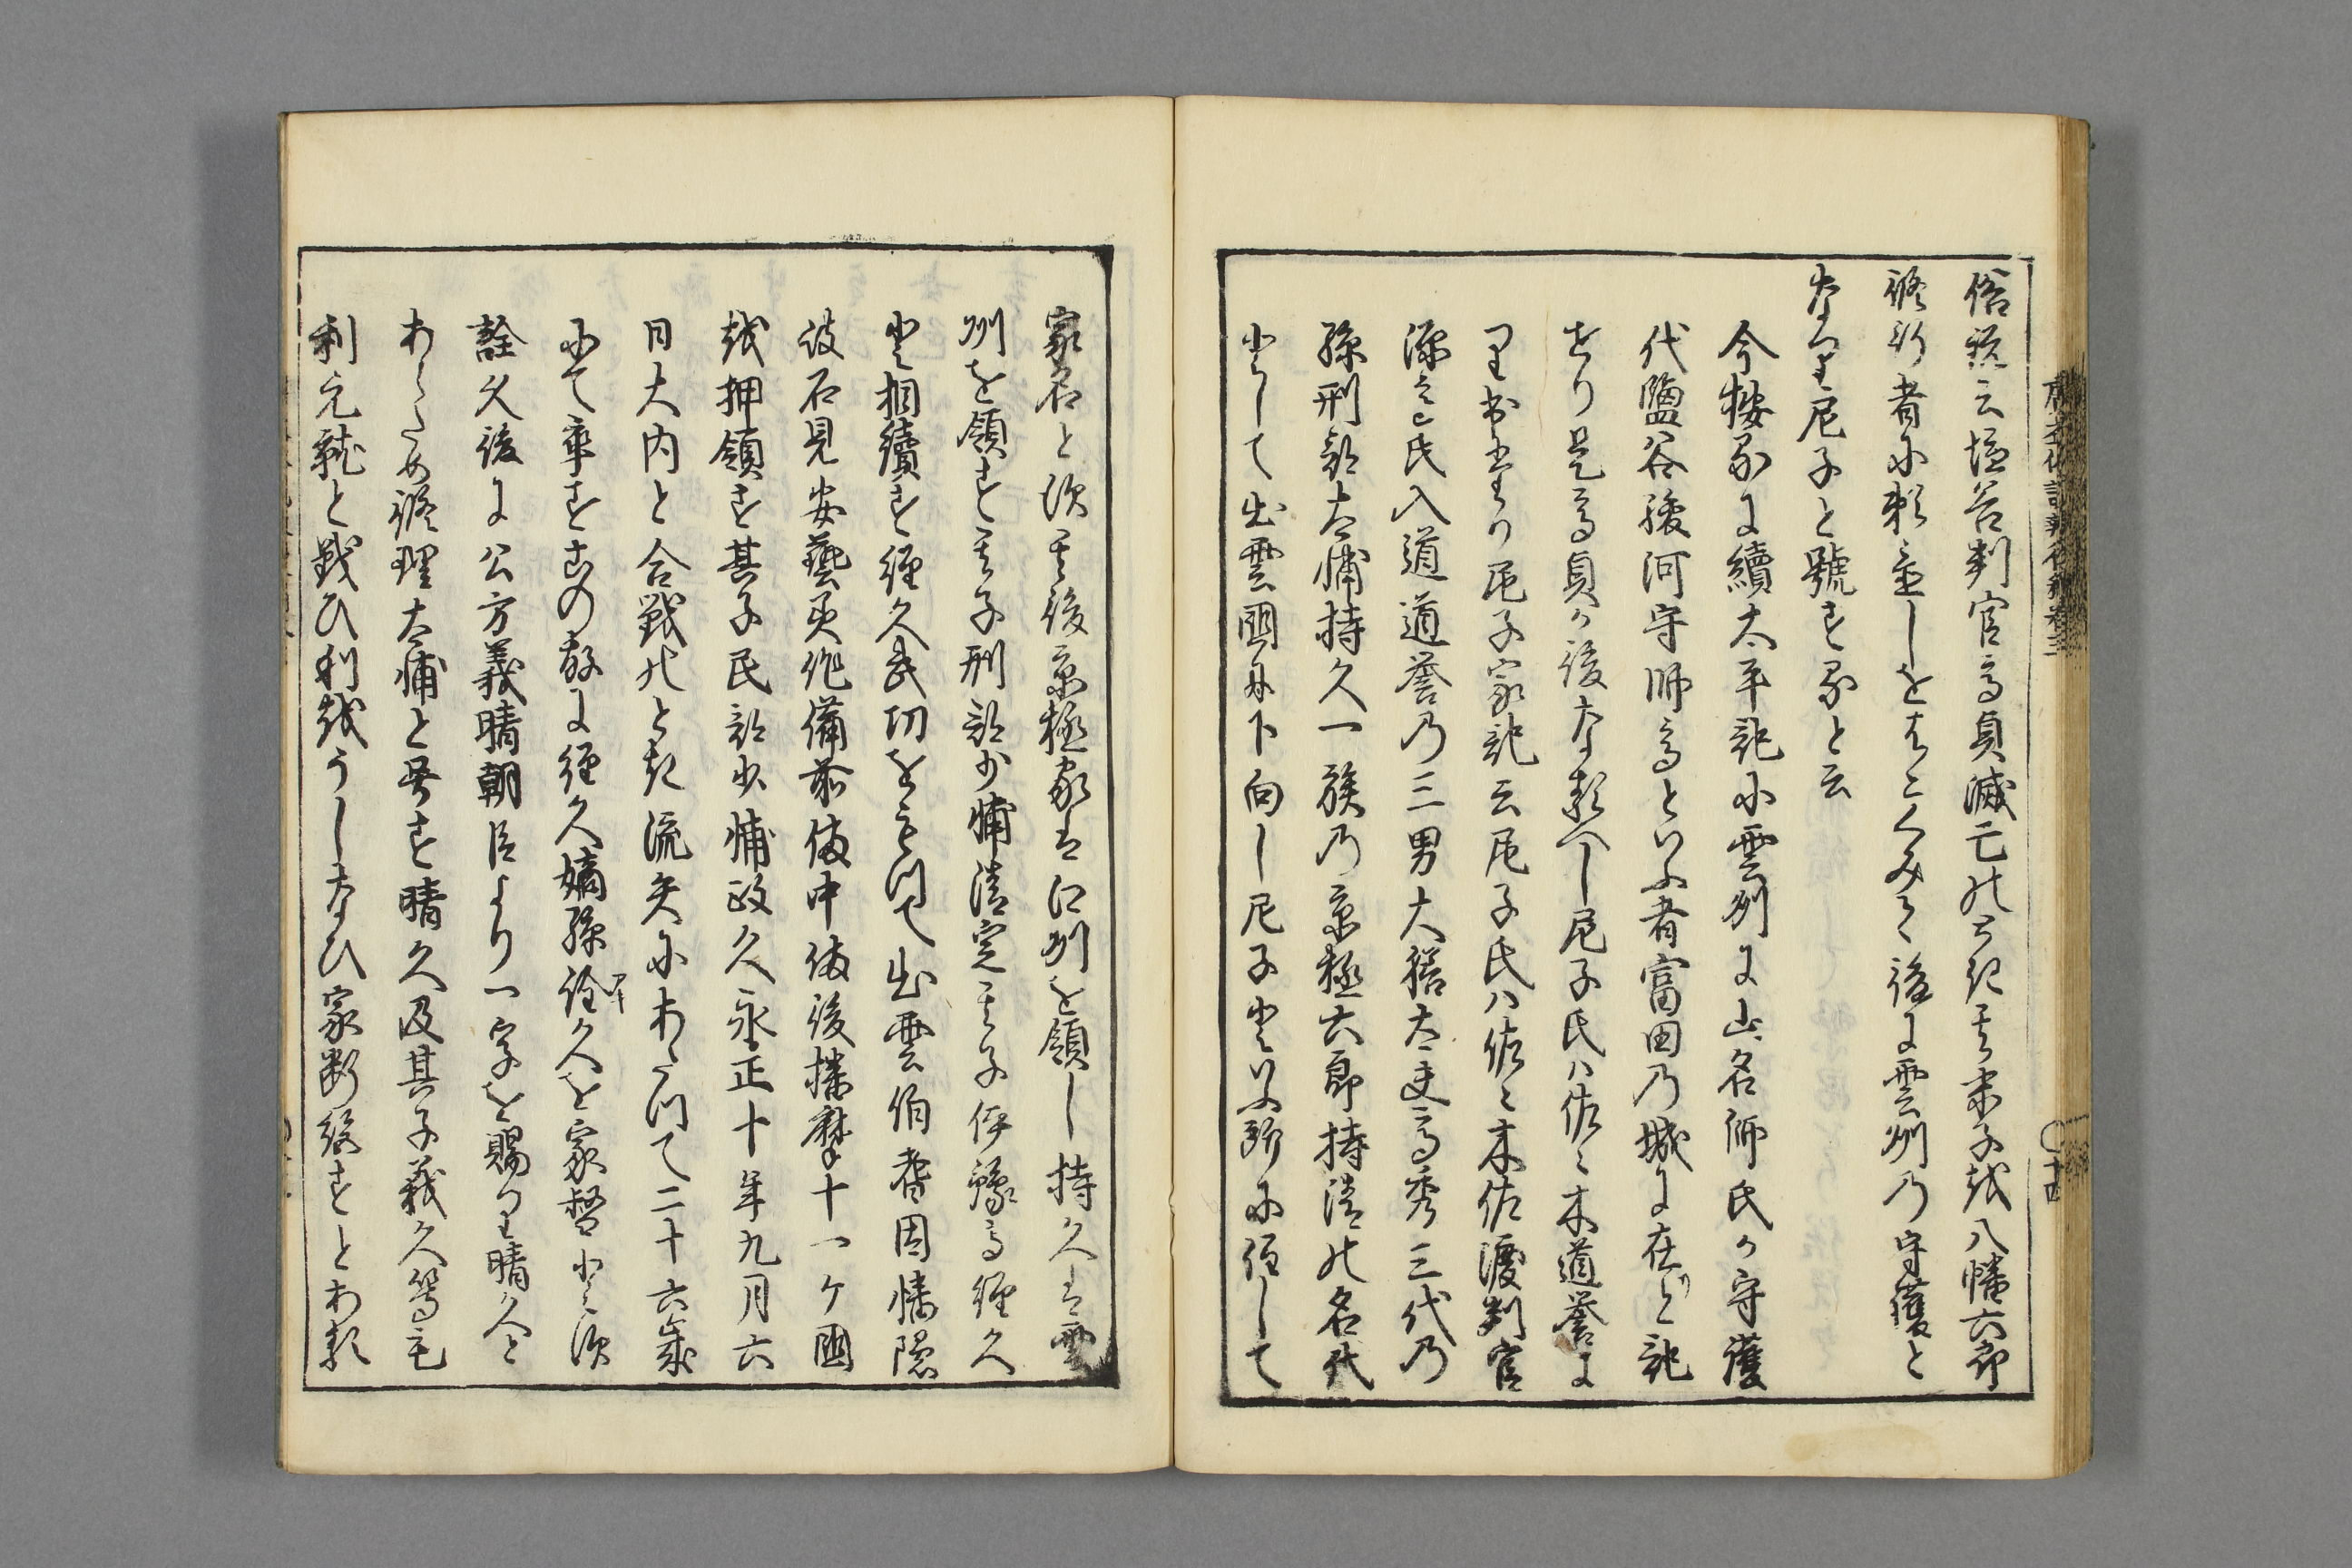 俗説云塩谷判官高貞滅亡のとき其末子越八幡六郎
修行者に頼置しをはこくみて後に雲州乃守護と
なり尼子と號すると云
今按るに續太平記に雲州に山名師氏か守護
代鹽谷駿河守師高といふ者富田乃城に在と記
せり是高貞か後なるへし尼子氏ハ佐々木道誉に
り出たり尼子家記云尼子氏ハ佐々木佐渡判官
源高氏入道道誉乃三男大膳太夫高秀三代乃
孫刑部太輔持久一族乃京極六郎持清の名代
として出雲國に下向し尼子といふ所に住して
家名と次其後京極家は江州を領し持久は雲
州を領す其子刑部少輔清定其子伊豫守經久
と相續す經久武功をもつて出雲伯耆因幡隠
岐石見安藝美作備前備中備後播摩十一ケ國
越押領す其子民部少輔政久永正十年九月六
日大内と合戦のとき流矢にあたつて二十六歳
にて卒すこの故に經久嫡孫詮久を家督とす
詮久後に公方義晴朝臣より一字を賜り晴久と
あらため修理太輔と号す晴久及其子義久等毛
利元就と戦ひ利越うしなひ家断絶すとある